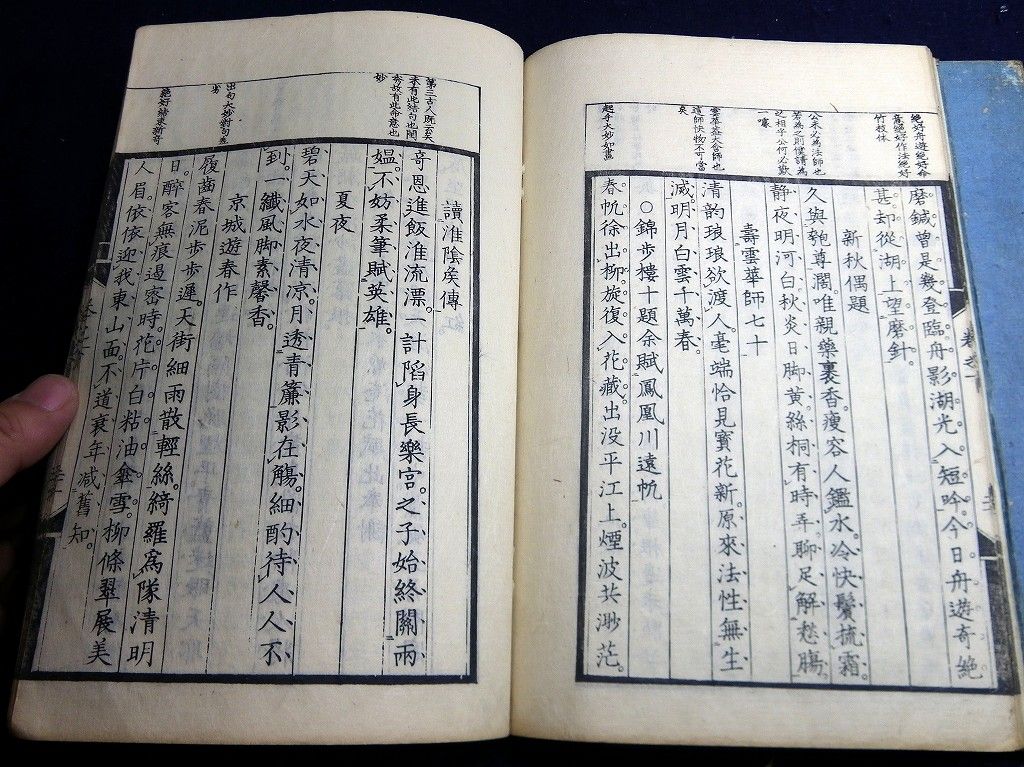 絶好舟遊絶好命
意絶好作法絶好
竹枝体
磨鍼曾是幾登臨。舟影湖光入短吟。今日舟遊奇絶
甚。却從湖上望磨針。
新秋偶題
公未必為法師也
若為之則僕請為
之相乎公何必歎
一噱
久與匏尊濶。唯親藥裹香。瘦容人鑑水。冷快鬢梳霜。
静夜明河白。秋炎日脚黄。絲桐有時弄。聊足解愁膓。
壽雲華師七十
雲華盖大含師也
這師快物不可當
矣
清韵琅琅欲渡人。毫端恰見寳花新。原來法性無生
滅。明月白雲千萬春。
○錦歩樓十題余賦鳳凰川遠帆
起手大妙如畫
春帆徐出柳。旋復入花藏。出没平江上。煙波共渺茫。
讀淮陰矦傳
第三古人既云矣
奇恩進飯淮流漂。一計䧟身長樂宮。之子始終關兩
媼。不妨柔筆賦英雄。
夏夜
碧天如水夜清凉。月透青簾影在觴。細酌待人人不
到。一纖風脚素馨香。
京城遊春作
履齒春泥歩歩遲。天街細雨散輕絲。綺羅為隊清明
日。醉客無痕過密時。花片白粘油傘雪。柳條翠展美
絶好結末新奇
人眉。依依迎我東山面。不道衰年减舊知。